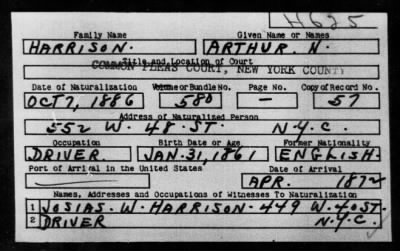 H625
Family Name Given Name or Names
HARRISON. ARTHUR. N.
Title and Location of Court
COMMON PLEAS COURT, NEW YORK COUNTY
Date of Naturalization Volume or Bundle No. Page No. Copy of Record No.
OCT 7, 1886 580 — 57
Address of Naturalized Person
552 W. 48. ST. N.Y.C.
Occupation Birth Date or Age Former Nationality
DRIVER. JAN. 31, 1861 ENGLISH.
Port of Arrival in the United States Date of Arrival
APR. 1872
Names, Addresses and Occupations of Witnesses To Naturalization
1 JOSIAS. W. HARRISON. 449 W. 40 ST.
2 DRIVER N.Y.C.